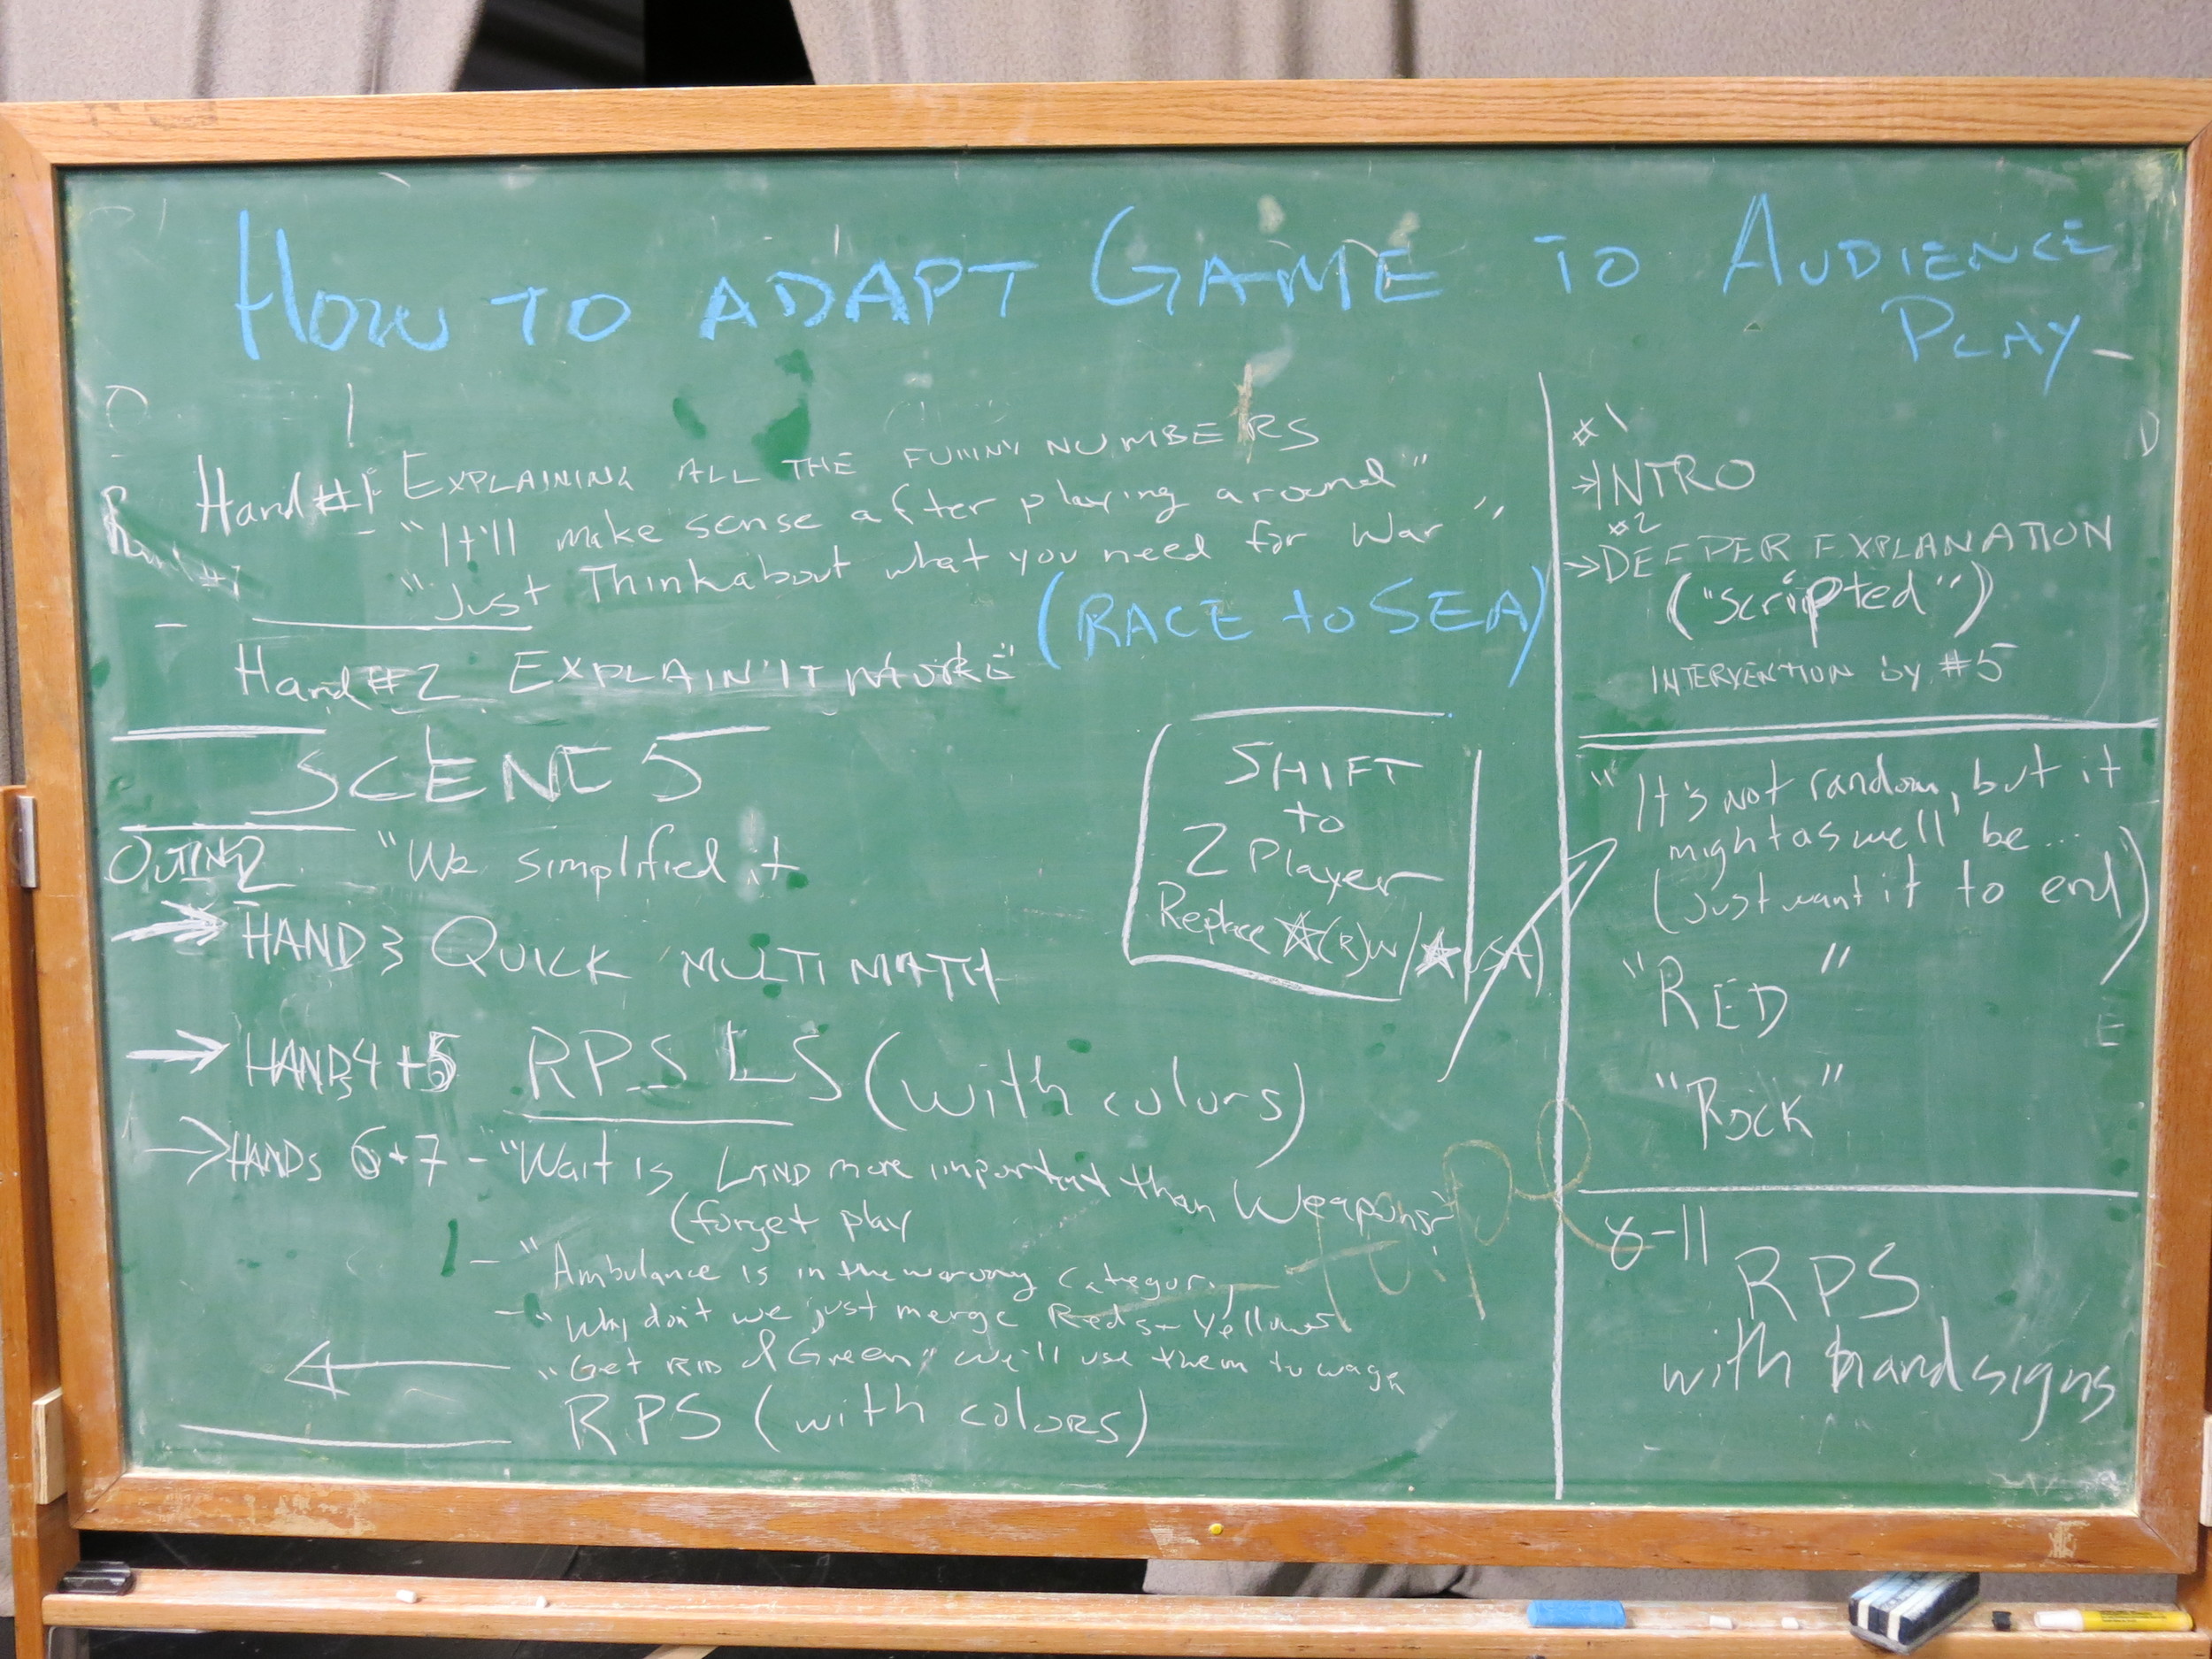 HOW TO ADAPT GAME TO AUDIENCE
PLAY
Hand #1 EXPLAINING ALL THE FUNNY NUMBERS
- "It'll make sense after playing around"
"Just Think about what you need for War"
(RACE to SEA)
Hand #2 EXPLAIN "IT MORE"
SCENE 5
OUTING 2 "We simplified it
→ HAND 3 QUICK MULTI MATH
→ HANDS 4+5 RPS LS (with colors)
→ HANDS 6+7 - "Wait is LAND more important than Weapons"
(forget play
- "Ambulance is in the wrong category
- "Why don't we just merge Reds + Yellows
"Get RID of Green, we'll use them to wage
RPS (with colors)
SHIFT
to
2 Player
Replace ☆(R) w/ ★ USA)
Tupe
#1
→ INTRO
#2
→ DEEPER EXPLANATION
("scripted")
INTERVENTION by #5
"It's not random, but it
might as well be...
(just want it to end)"
"RED"
"ROCK"
8-11
RPS
with hand signs